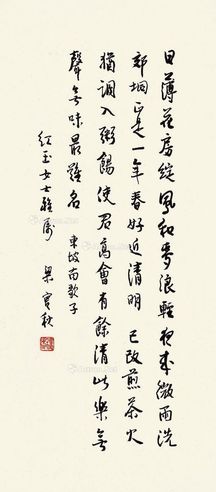 日薄花房綻風和麥浪輕夜來微雨洗
郊坰正是一年春好近清明　已改煎茶火
猶調入粥餳使君高會有餘清此樂無
聲無味最難名　東坡南歌子
紅玉女士雅屬　梁實秋